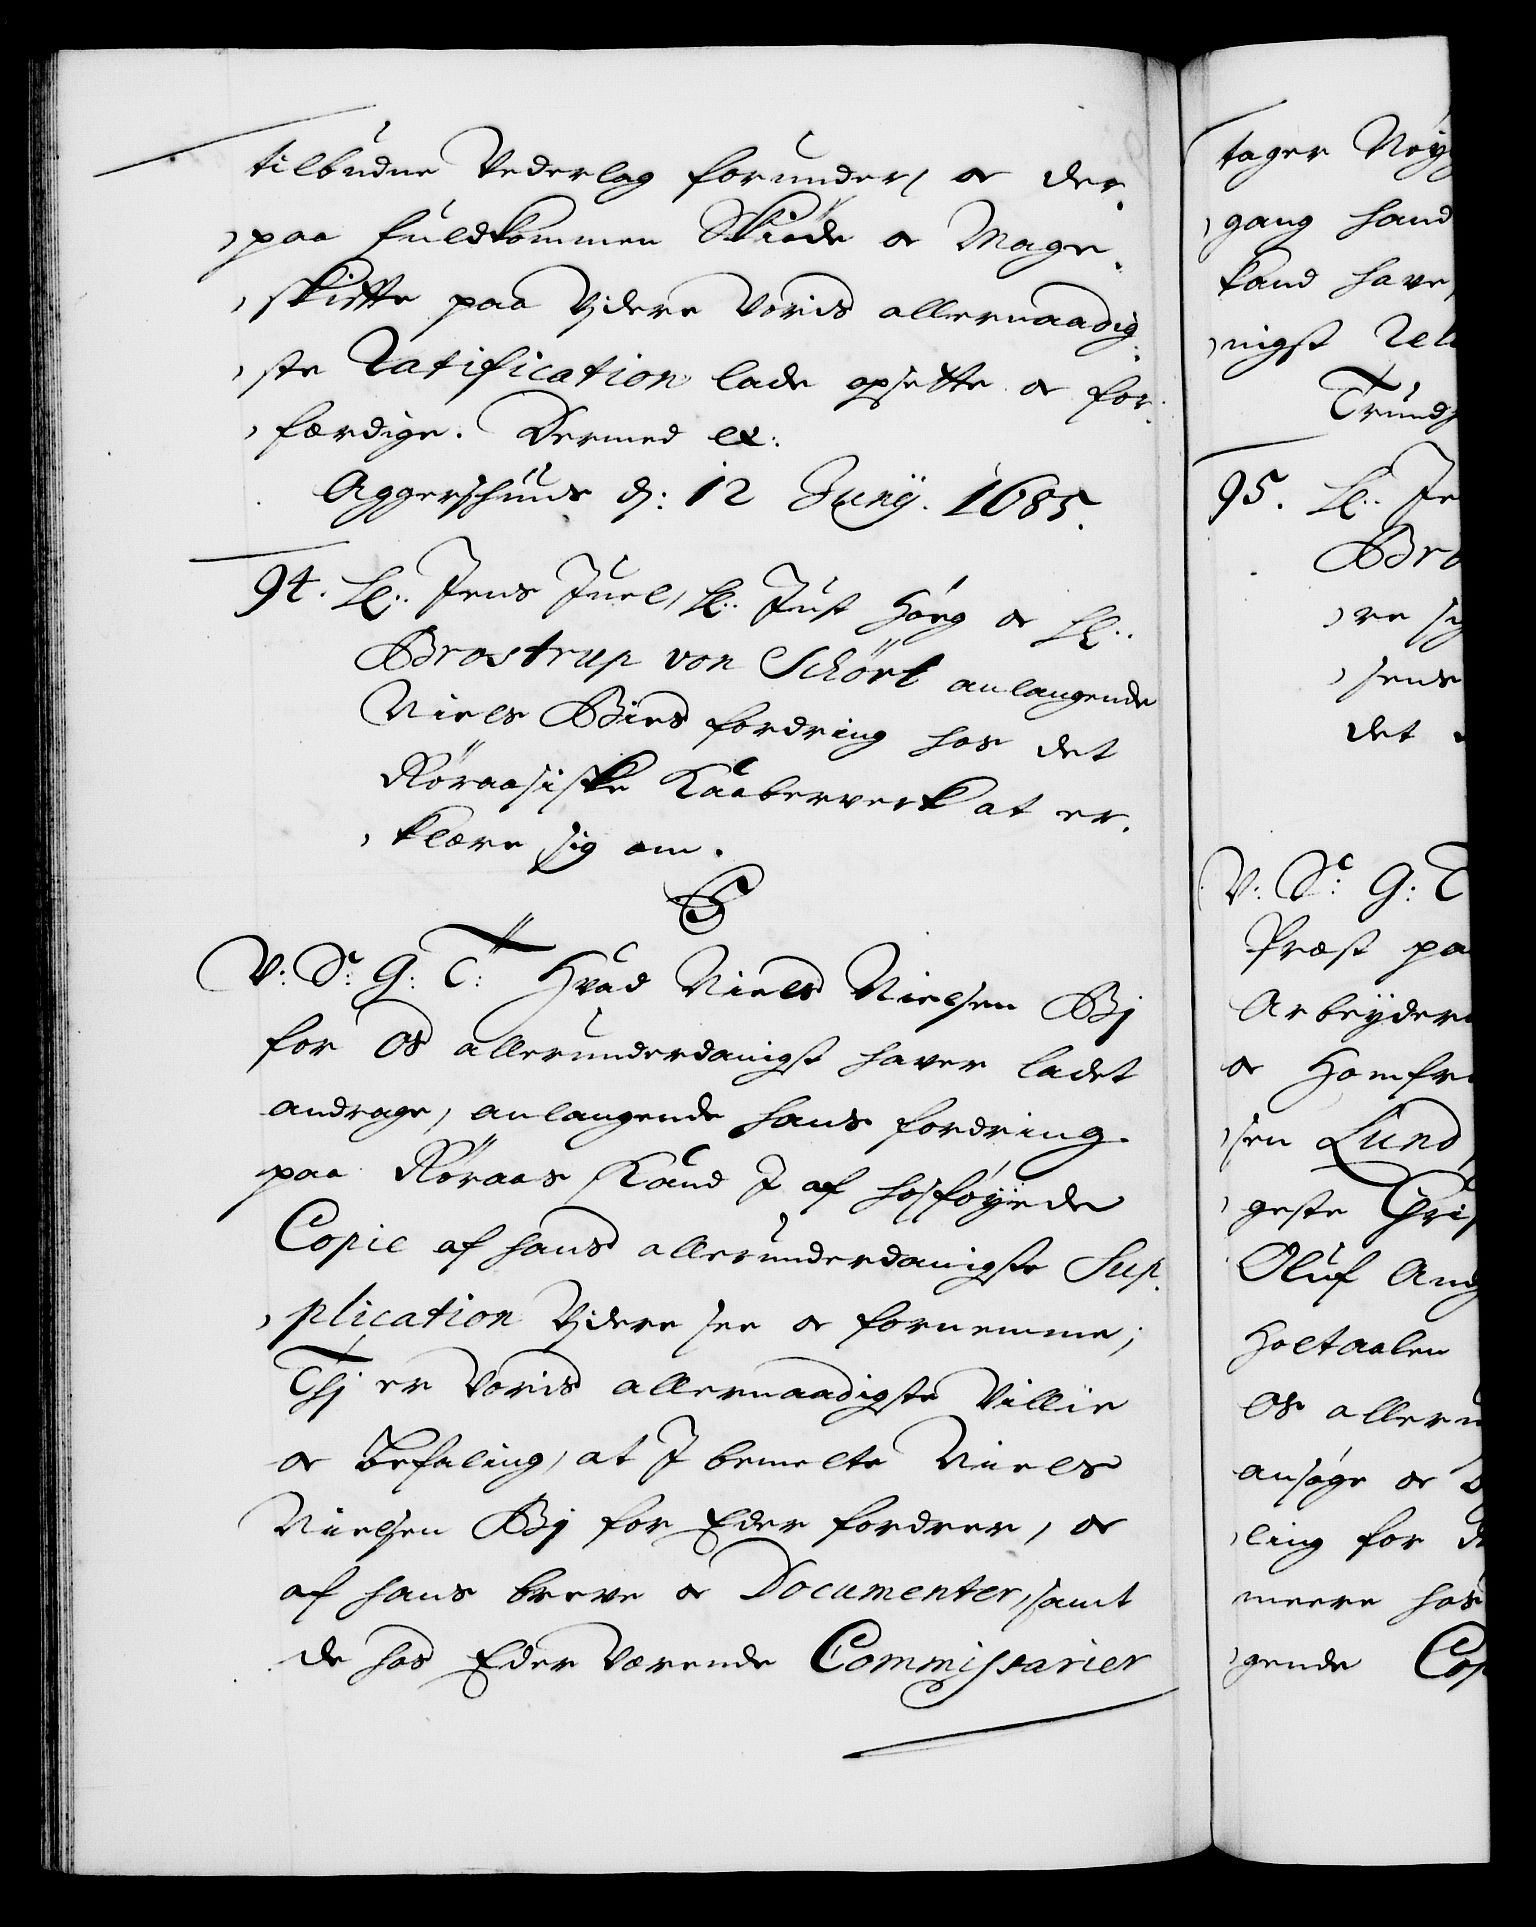 tilbudne Vederlag forunder, oc der,
,paa fuldkommen Skiøde oc Mage,
,skiffte paa Videre Voris allernaadig,
,ste Ratification lade opsette oc for,
,færdige. Dermed etc:
Aggershuus d: 12 Junij. 1685.
94. Hr. Jens Juel, Hr. Just Høeg oc Hr.
Brostrup von Schört anlangende
Niels Bies fordring hos det
Röraasiske Kaaberverk at er,
,klære sig om.
C5
V: S: G: T: Hvad Niels Nielsen Bj
for Os allerunderdanigst haver ladet
andrage, anlangende hans fordring
paa Röraas Kand I af hosføyede
Copie af hans allerunderdanigste Sup,
,plication Videre see oc fornemme;
Thj er Voris allernaadigste Villie
oc Befaling, at I bemelte Niels
Nielsen Bj for Eder fordrer, oc
af hans breve oc Documenter, samt
de hos Eder Værende Commissarier
tager Nøy
,gang hand
kand have,
,nigst Rel
Trund
95. Hr. Je
Bro
,re sig
,sens
det
V: S: G: T
Præst pa
Arbeyder
oc Homfr
,sen Lund,
,geste Chris
Oluf And
Holtaalen
Os allerun
ansøge oc
,ling for
meere hos
,gende Cop